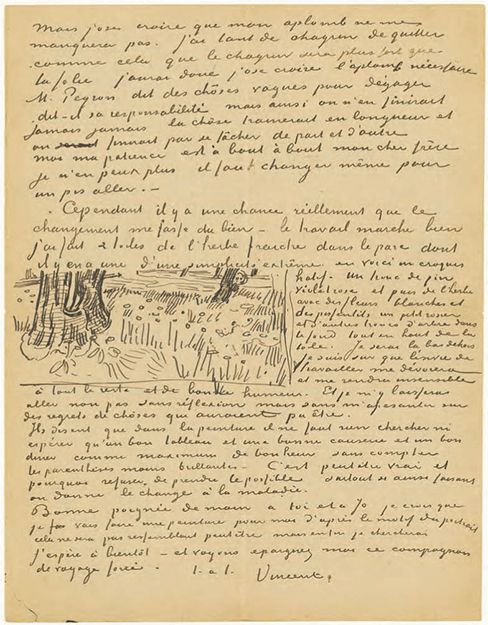 Mais j'ose croire que mon aplomb ne me
manquera pas. j'ai tant de chagrin de quitter
comme cela que le chagrin sera plus fort que
la folie j'aurai donc j'ose croire l'aplomb nécessaire
M. Peyron dit des choses vagues pour dégager
dit-il sa responsabilité mais ainsi on n'en finirait
jamais jamais la chose trainerait en longueur et
on finirait par se fâcher de part et d'autre
moi ma patience est à bout à bout mon cher frère
je n'en peux plus il faut changer même pour
un pis aller. —
Cependant il y a une chance réellement que le
changement me fasse du bien — le travail marche bien
j'ai fait 2 toiles de l'herbe fraiche dans le parc dont
il y en a une d'une simplicité extrême en voici un croquis
hatif. Un tronc de pin
violet rose et puis de l'herbe
avec des fleurs blanches et
des pissenlits un petit rosier
et d'autres troncs d'arbre dans
le fond tout en haut de la
toile. Je serai la bas dehors
je suis sur que l'envie de
travailler me dévorera
et me rendra insensible
à tout le reste et de bonne humeur. Et je m'y laisserai
aller non pas sans réflexion mais sans m'appesantir sur
des regrets de choses qui auraient pu être.
Ils disent que dans la peinture il ne faut rien chercher ni
espérer qu'un bon tableau et une bonne causerie et un bon
diner comme maximum de bonheur sans compter
les parenthèses moins brillantes — C'est peutêtre vrai et
pourquoi refuser de prendre le possible surtout si ainsi faisant
on donne le change à la maladie.
Bonne poignée de main a toi et à Jo je crois que
je vais faire une peinture pour moi d'après le motif du portrait
cela ne sera pas ressemblant peutêtre mais enfin je chercherai
j'espère à bientôt — et voyons epargnez moi ce compagnon
de voyage forcé. t. à t. Vincent.